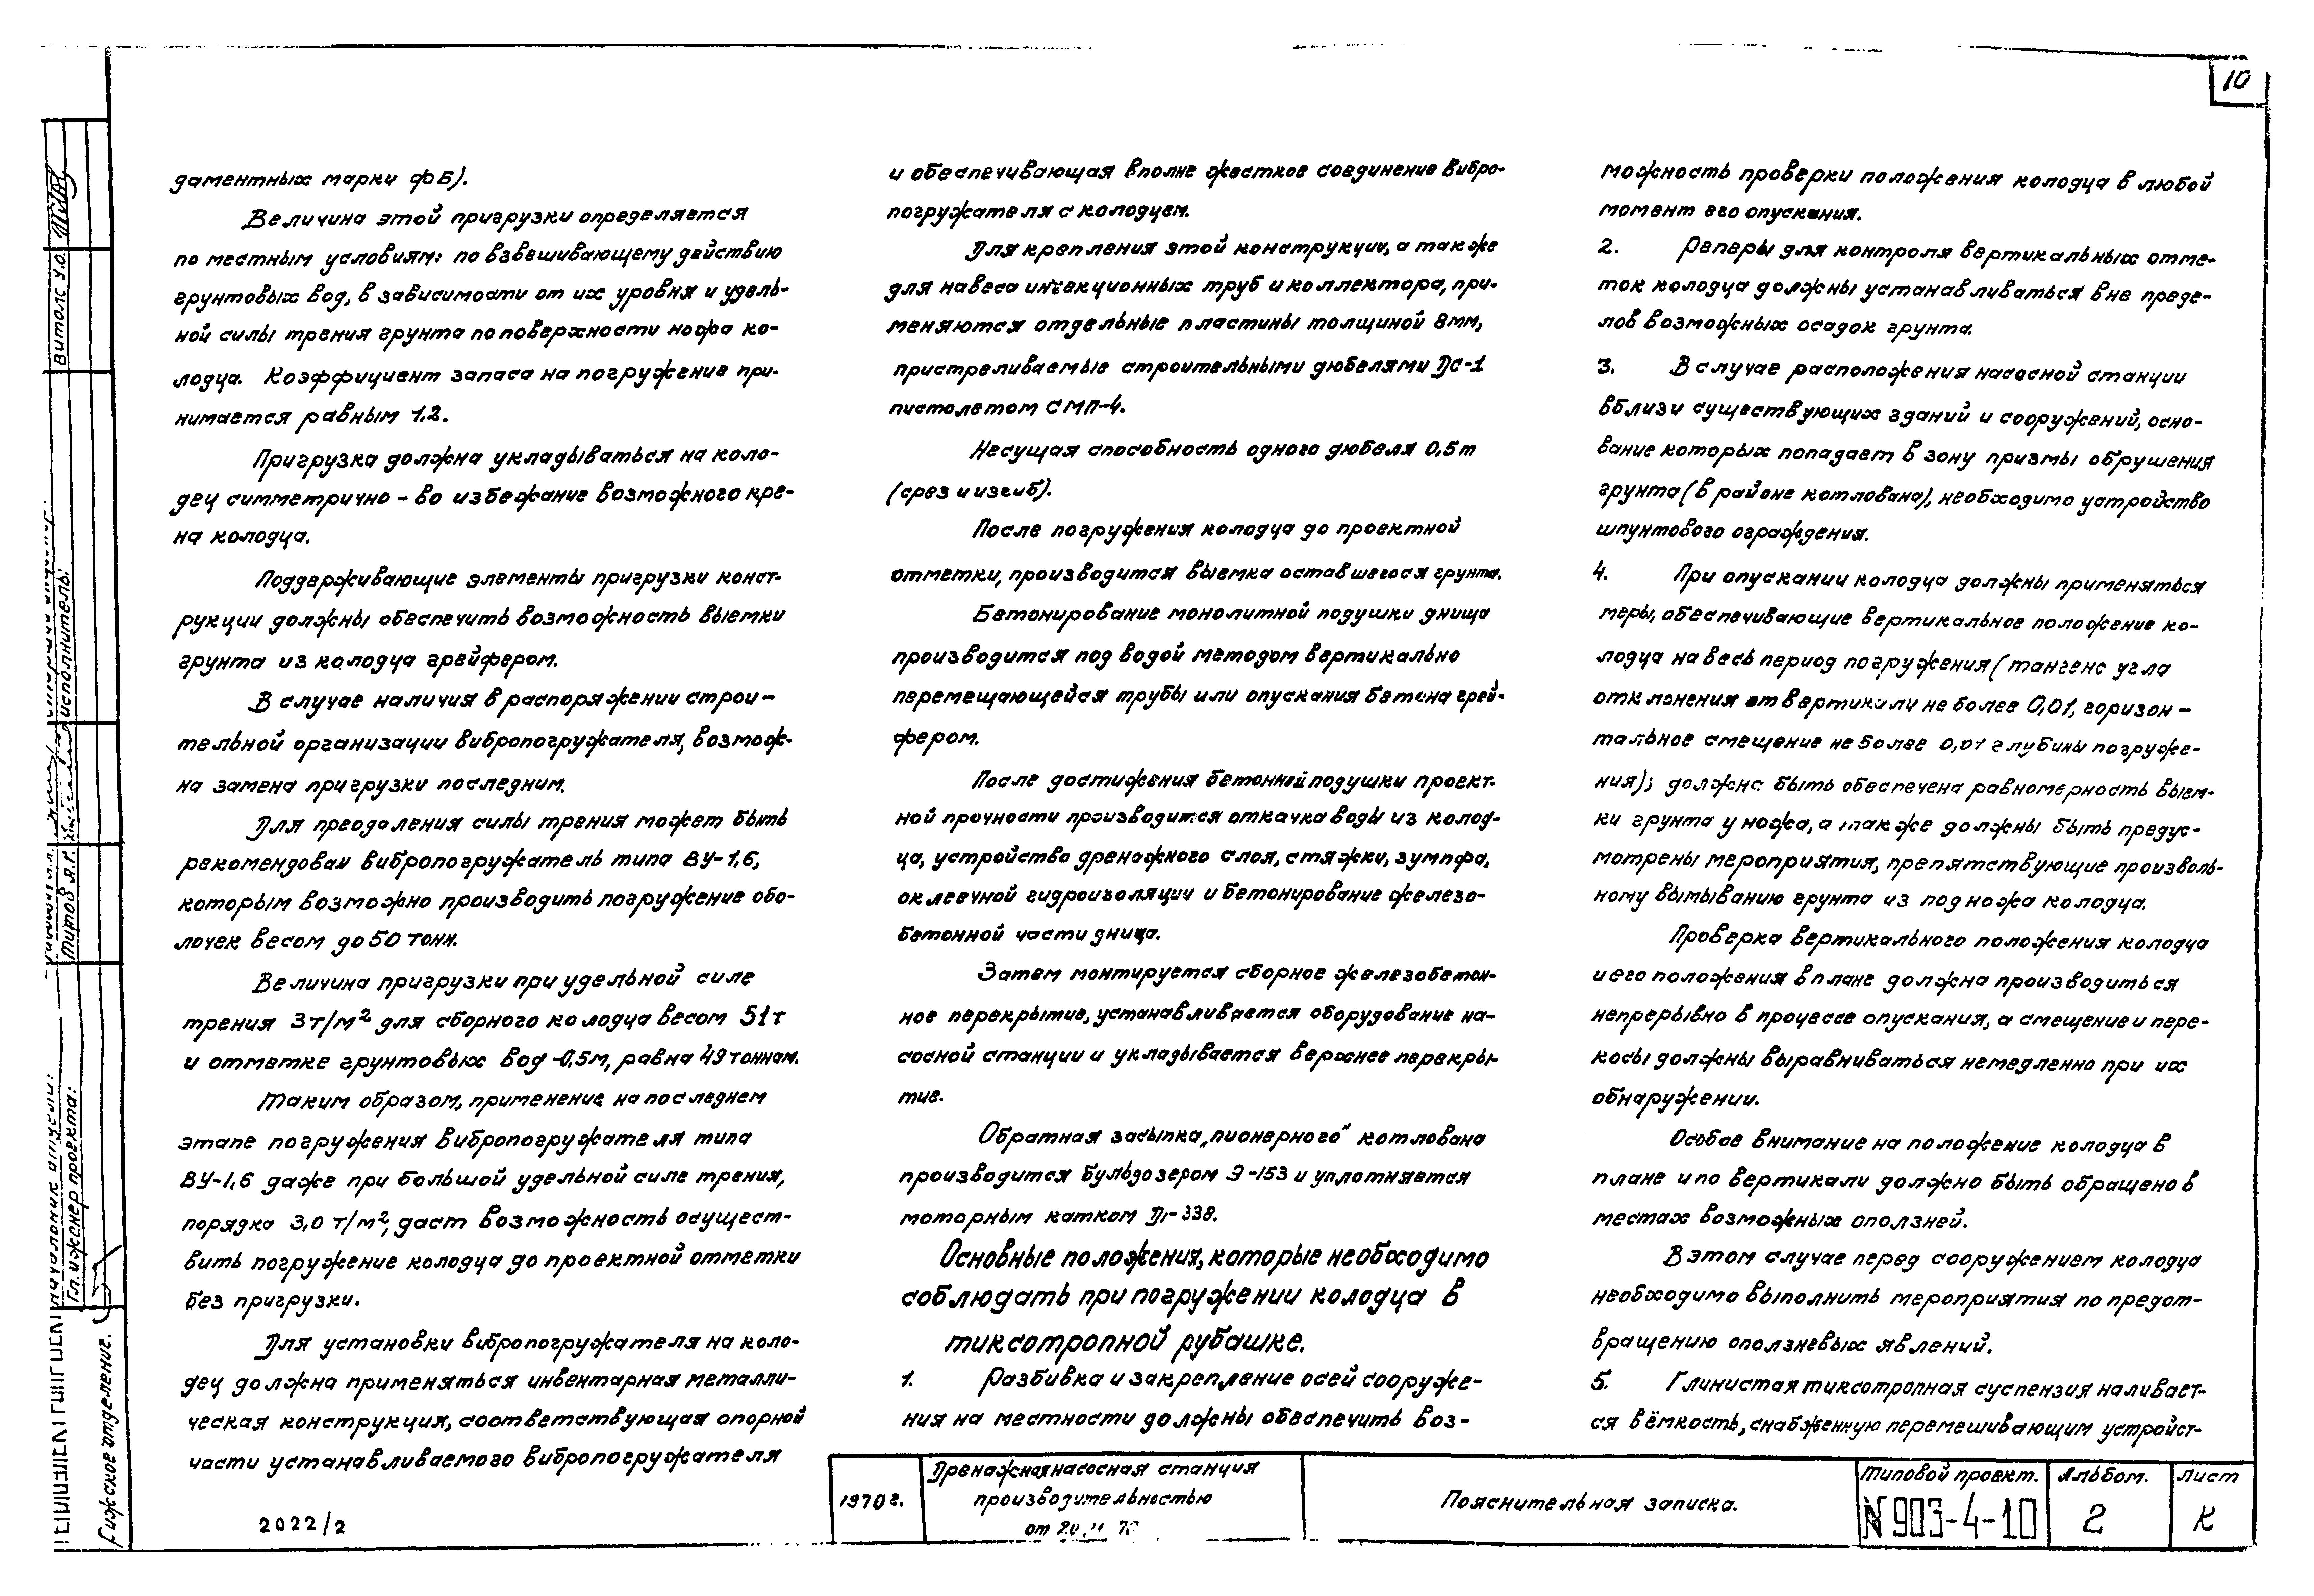 10
даментных марки ФБ).
Величина этой пригрузки определяется
по местным условиям: по взвешивающему действию
грунтовых вод, в зависимости от их уровня и удель-
ной силы трения грунта по поверхности ножа ко-
лодца. Коэффициент запаса на погружение при-
нимается равным 1.2.
Пригрузка должна укладываться на коло-
дец симметрично – во избежание возможного кре-
на колодца.
Поддерживающие элементы пригрузки конст-
рукции должны обеспечить возможность выемки
грунта из колодца грейфером.
В случае наличия в распоряжении строи-
тельной организации вибропогружателя, возмож-
на замена пригрузки последним.
Для преодоления силы трения может быть
рекомендован вибропогружатель типа ВУ-1,6,
которым возможно производить погружение обо-
лочек весом до 50 тонн.
Величина пригрузки при удельной силе
трения 3т/м² для сборного колодца весом 51т
и отметке грунтовых вод -0.5м, равна 49 тоннам.
Таким образом, применение на последнем
этапе погружения вибропогружателя типа
ВУ-1,6 даже при большой удельной силе трения,
порядка 3,0 т/м², даст возможность осущест-
вить погружение колодца до проектной отметки
без пригрузки.
Для установки вибропогружателя на коло-
дец должна применяться инвентарная металли-
ческая конструкция, соответствующая опорной
части устанавливаемого вибропогружателя
и обеспечивающая вполне жесткое соединение вибро-
погружателя с колодцем.
Для крепления этой конструкции, а также
для навеса инъекционных труб и коллектора, при-
меняются отдельные пластины толщиной 8мм,
пристреливаемые строительными дюбелями ДС-1
пистолетом СМП-4.
Несущая способность одного дюбеля 0,5т
(срез и изгиб).
После погружения колодца до проектной
отметки, производится выемка оставшегося грунта.
Бетонирование монолитной подушки днища
производится под водой методом вертикально
перемещающейся трубы или опускания бетона грей-
фером.
После достижения бетонной подушки проект-
ной прочности производится откачка воды из колод-
ца, устройство дренажного слоя, стяжки, зумпфа,
оклеечной гидроизоляции и бетонирование железо-
бетонной части днища.
Затем монтируется сборное железобетон-
ное перекрытие, устанавливается оборудование на-
сосной станции и укладывается верхнее перекры-
тие.
Обратная засыпка „пионерного" котлована
производится бульдозером Э-153 и уплотняется
моторным катком Д-338.
Основные положения, которые необходимо
соблюдать при погружении колодца в
тиксотропной рубашке.
1. Разбивка и закрепление осей сооруже-
ния на местности должны обеспечить воз-
можность проверки положения колодца в любой
момент его опускания.
2. Реперы для контроля вертикальных отме-
ток колодца должны устанавливаться вне преде-
лов возможных осадок грунта.
3. В случае расположения насосной станции
вблизи существующих зданий и сооружений, осно-
вание которых попадает в зону призмы обрушения
грунта (в районе котлована), необходимо устройство
шпунтового ограждения.
4. При опускании колодца должны применяться
меры, обеспечивающие вертикальное положение ко-
лодца на весь период погружения (тангенс угла
отклонения от вертикали не более 0,01, горизон-
тальное смещение не более 0,01 глубины погруже-
ния); должна быть обеспечена равномерность выем-
ки грунта у ножа, а также должны быть предус-
мотрены мероприятия, препятствующие произволь-
ному вымыванию грунта из под ножа колодца.
Проверка вертикального положения колодца
и его положения в плане должна производиться
непрерывно в процессе опускания, а смещение и пере-
косы должны выравниваться немедленно при их
обнаружении.
Особое внимание на положение колодца в
плане и по вертикали должно быть обращено в
местах возможных оползней.
В этом случае перед сооружением колодца
необходимо выполнить мероприятия по предот-
вращению оползневых явлений.
5. Глинистая тиксотропная суспензия наливает-
ся в ёмкость, снабженную перемешивающим устройст-
2022/2
1970г.
Дренажная насосная станция
производительностью
от 20
Пояснительная записка.
Типовой проект.
N 903-4-10
Альбом.
2
Лист
К
Витолс У.О.
исполнитель:
Титов Я.Г.
Гл. инженер проекта:
Рижское отделение.